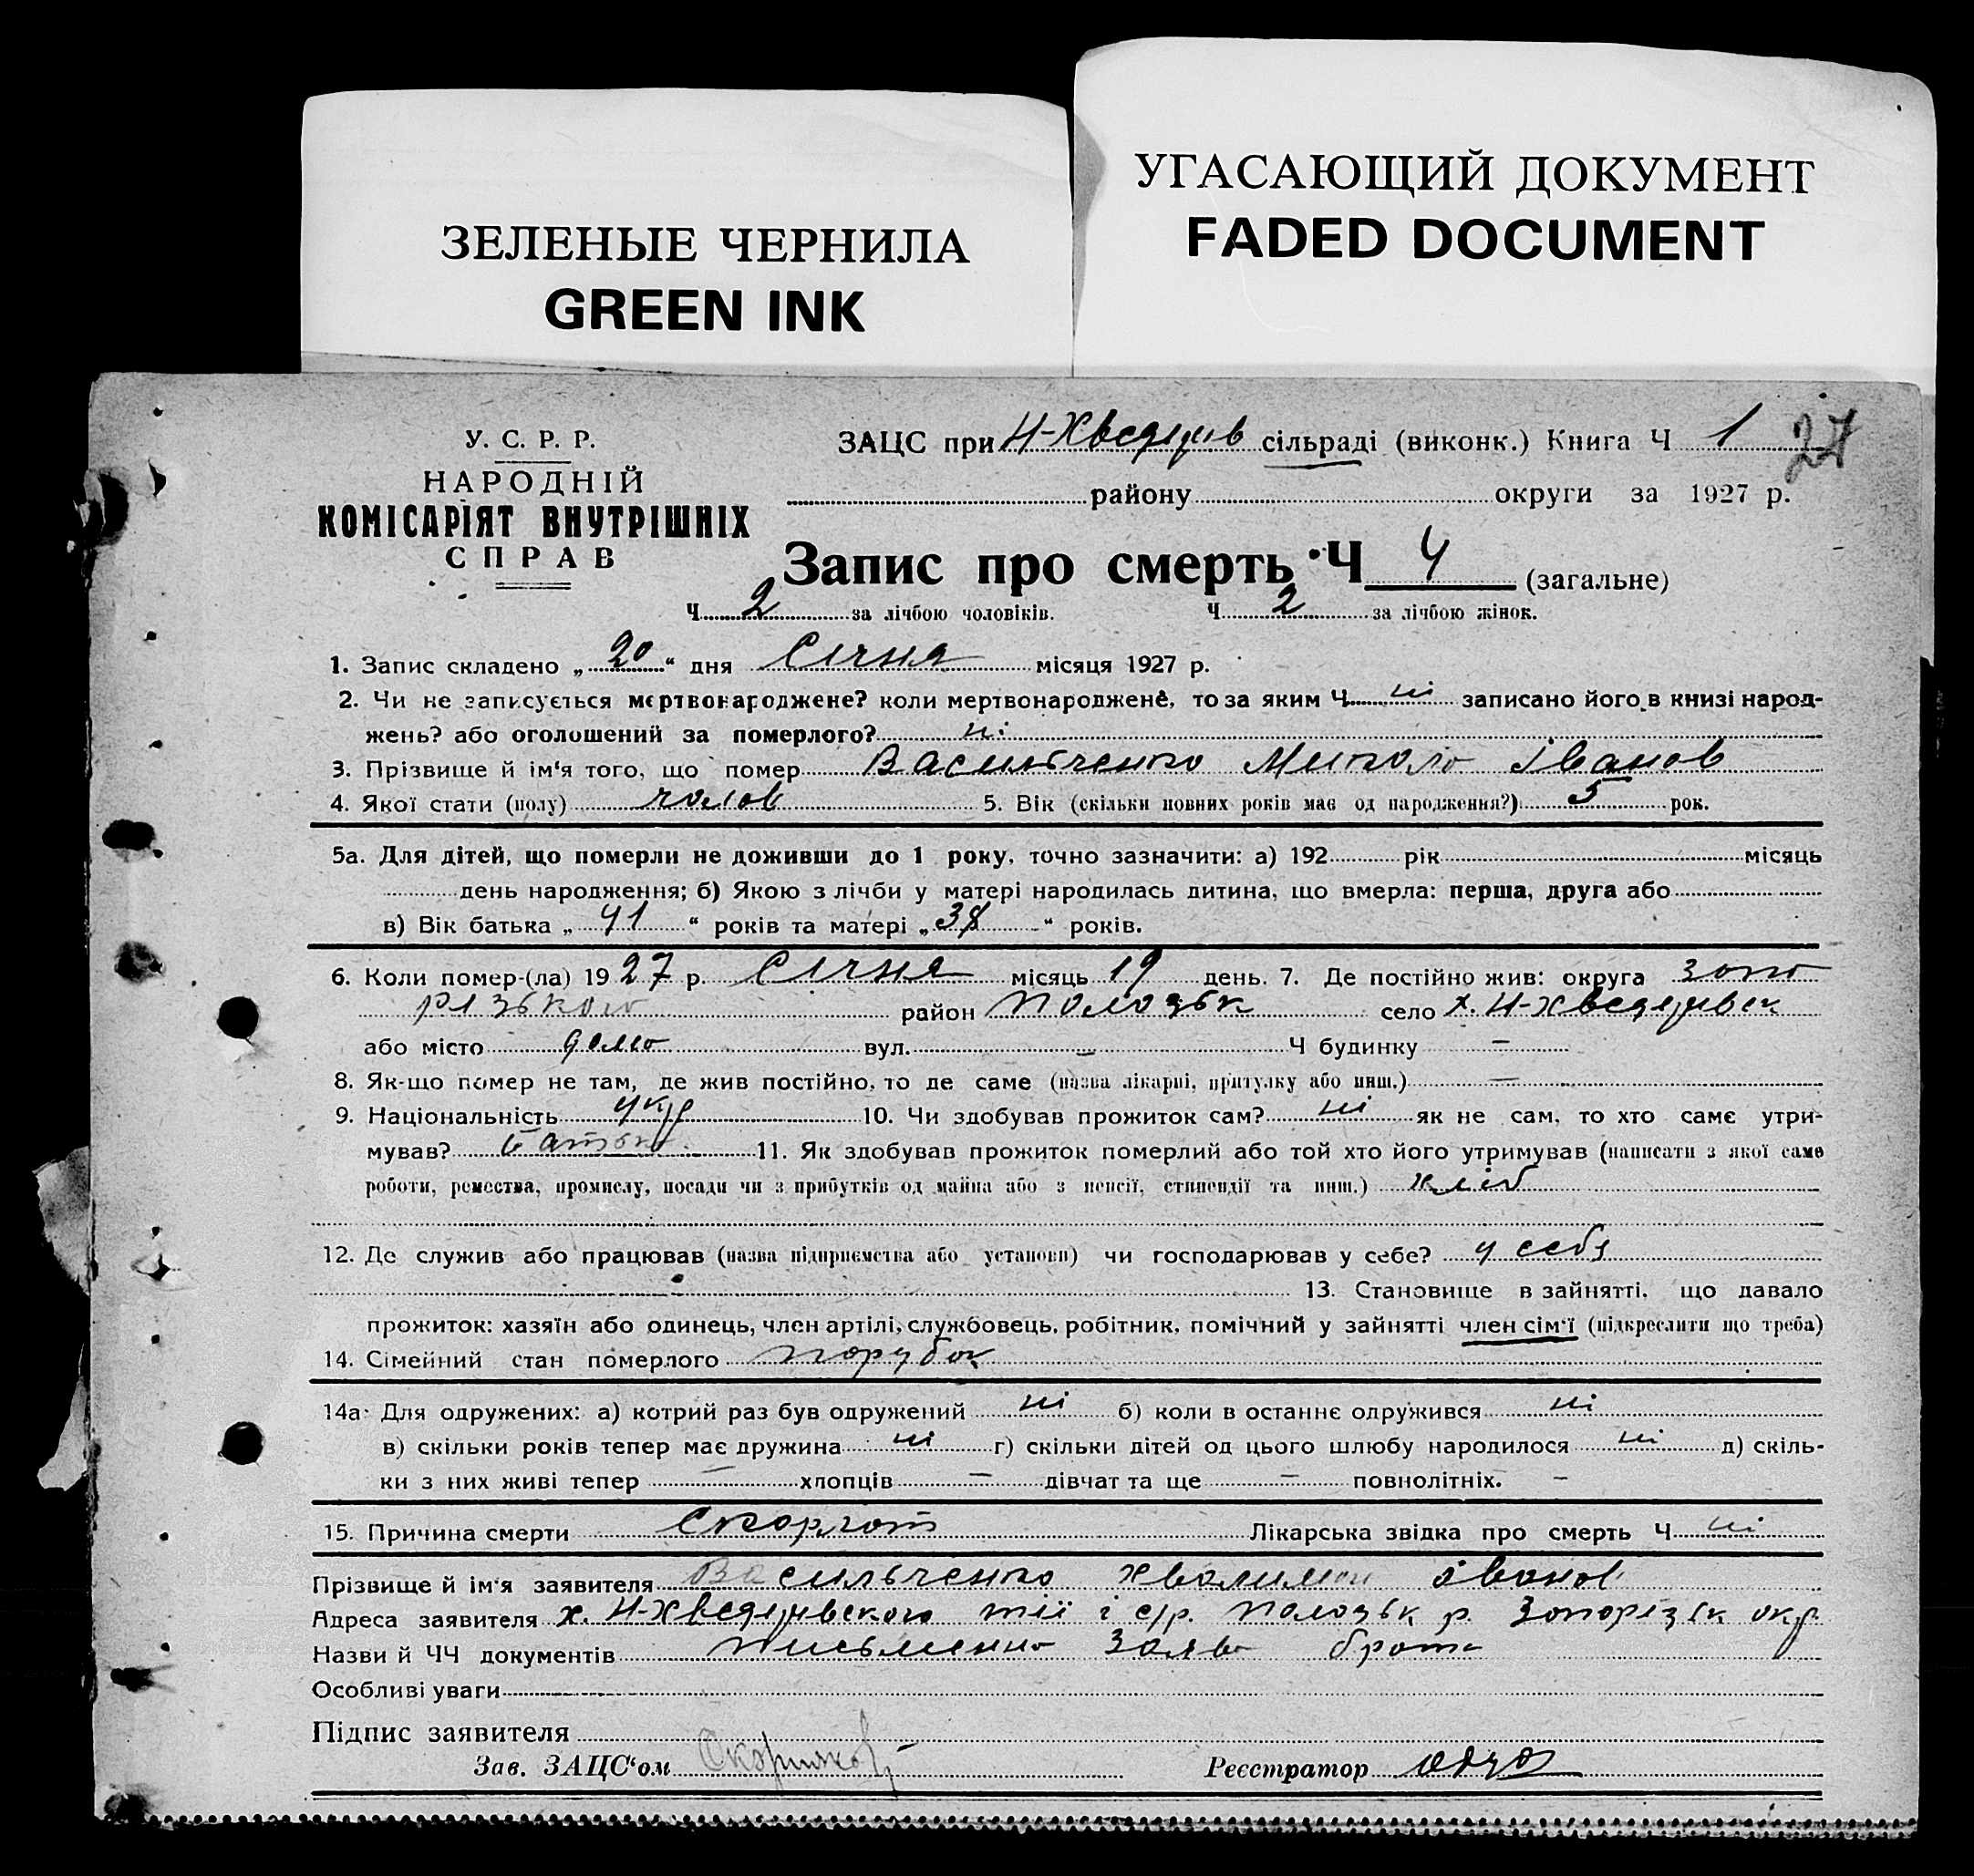 УГАСАЮЩИЙ ДОКУМЕНТ
FADED DOCUMENT
ЗЕЛЕНЫЕ ЧЕРНИЛА
GREEN INK
У. С. Р. Р.
НАРОДНІЙ
КОМІСАРІЯТ ВНУТРІШНІХ
СПРАВ
ЗАЦС при сільраді (виконк.) Книга Ч 1 27
району округи за 1927 р.
Запис про смерть Ч 4 (загальне)
Ч 2 за лічбою чоловіків. Ч 2 за лічбою жінок.
1. Запис складено „20“ дня Січня місяця 1927 р.
2. Чи не записується мертвонароджене? коли мертвонароджене, то за яким Ч ні записано його в книзі народ-
жень? або оголошений за померлого? ні
3. Прізвище й ім‘я того, що помер Васильченко Микола Іванов
4. Якої стати (полу) чолов 5. Вік (скільки повних років має од народження?) 5 рок.
5а. Для дітей, що померли не доживши до 1 року, точно зазначити: а) 192 рік місяць
день народження; б) Якою з лічби у матері народилась дитина, що вмерла: перша, друга або
в) Вік батька „41“ років та матері „38“ років.
6. Коли помер-(ла) 1927 р. Січня місяць 19 день. 7. Де постійно жив: округа Запо
різького район Пологськ село х. Н-Хведерівськ
або місто вул. – Ч будинку –
8. Як-що помер не там, де жив постійно, то де саме (назва лікарні, притулку або инш.) –
9. Національність укр 10. Чи здобував прожиток сам? ні як не сам, то хто саме утри-
мував? батько 11. Як здобував прожиток померлий або той хто його утримував (написати з якої саме
роботи, ремества, промислу, посади чи з прибутків од майна або з пенсії, стипендії та инш.) хліб
12. Де служив або працював (назва підприємства або установи) чи господарював у себе? у себе
13. Становище в зайнятті, що давало
прожиток: хазяїн або одинець, член артілі, службовець, робітник, помічний у зайнятті член сім‘ї (підкреслити що треба)
14. Сімейний стан померлого парубок
14а. Для одружених: а) котрий раз був одружений ні б) коли в останнє одружився ні
в) скільки років тепер має дружина ні г) скільки дітей од цього шлюбу народилося ні д) скіль-
ки з них живі тепер – хлопців – дівчат та ще – повнолітніх. –
15. Причина смерти Скорлат Лікарська звідка про смерть Ч ні
Прізвище й ім‘я заявителя Васильченко Іванов
Адреса заявителя х. Н-Хведерівського тії і с/р. Пологськ р. Запорізьк окр.
Назви й ЧЧ документів письменна заява брата
Особливі уваги
Підпис заявителя
Зав. ЗАЦС‘ом Реєстратор